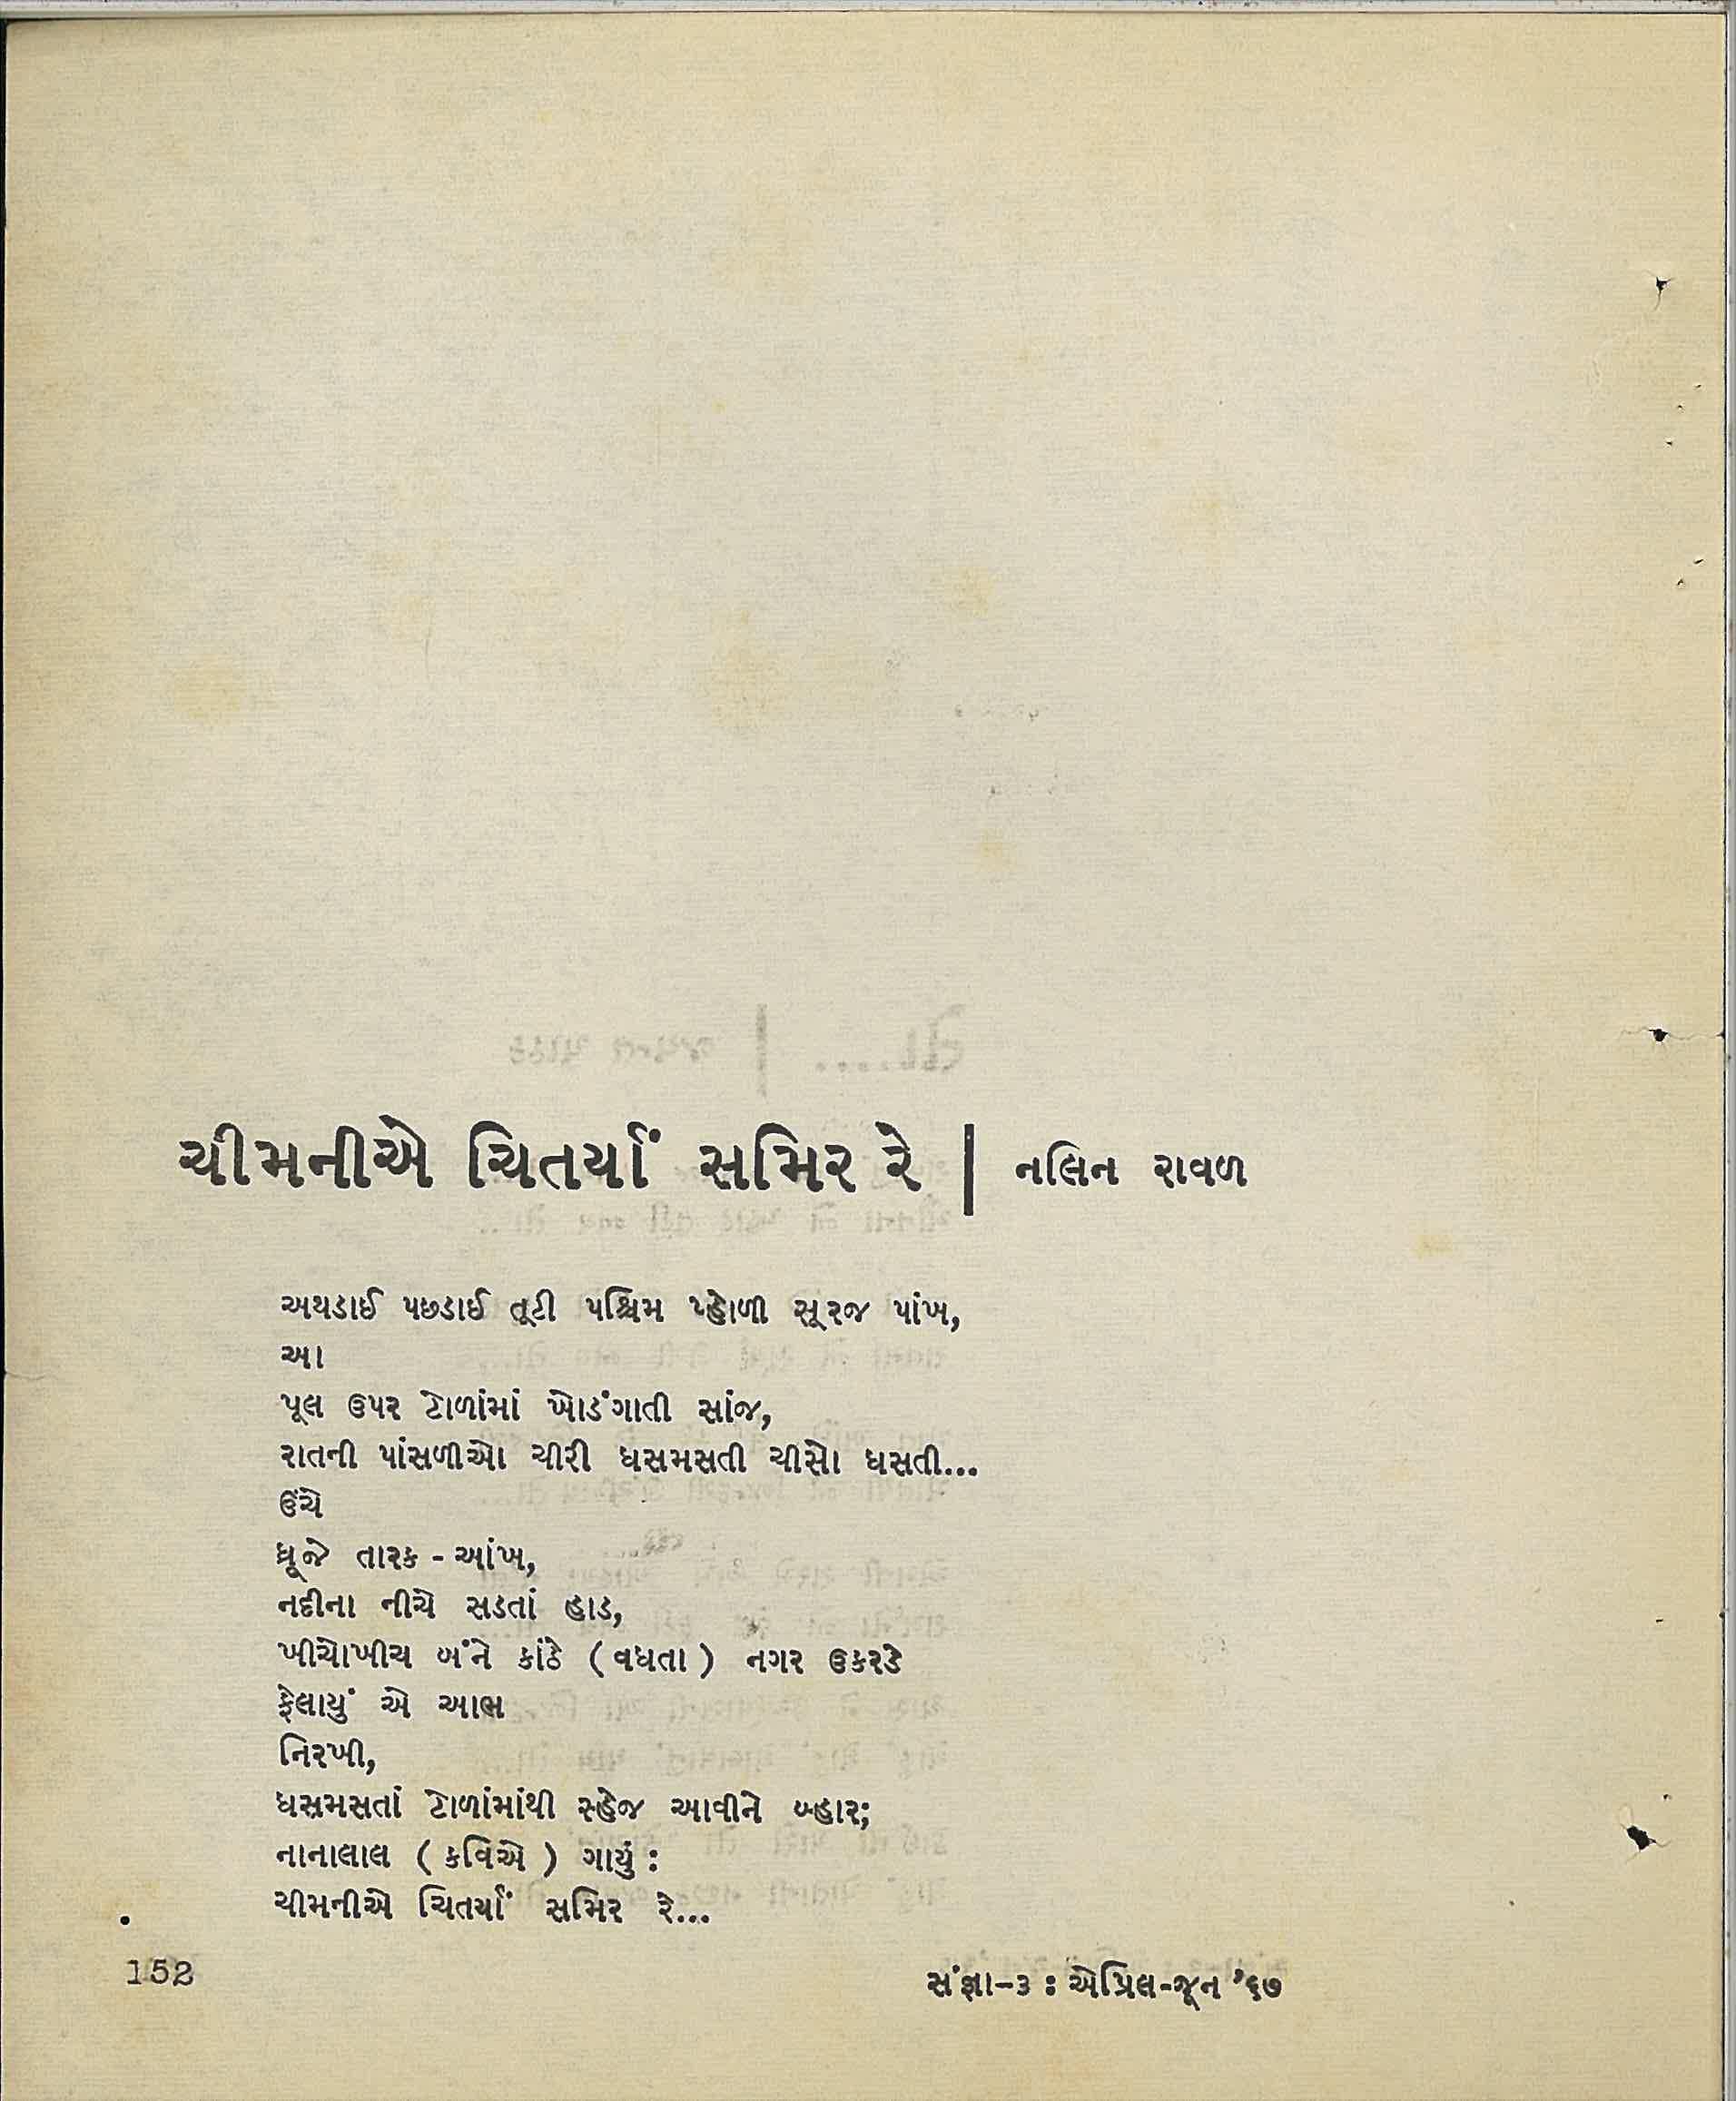 ચીમનીએ ચિતર્યાં સમિર રે | નલિન રાવળ
અથડાઈ પછડાઈ તૂટી પશ્ચિમ પ્હોળી સૂરજ પાંખ,
આ
પૂલ ઉપર ટોળાંમાં ખોડંગાતી સાંજ,
રાતની પાંસળીઓ ચીરી ધસમસતી ચીસો ધસતી...
ઉંચે
ધ્રૂજે તારક - આંખ,
નદીના નીચે સડતાં હાડ,
ખીચોખીચ બંને કાંઠે ( વધતા ) નગર ઉકરડે
ફેલાયું એ આભ
નિરખી,
ધસમસતાં ટોળાંમાંથી સ્હેજ આવીને બ્હાર;
નાનાલાલ ( કવિએ ) ગાયું :
ચીમનીએ ચિતર્યાં સમિર રે...
152
સંજ્ઞા-૩ : એપ્રિલ-જૂન '૬૭